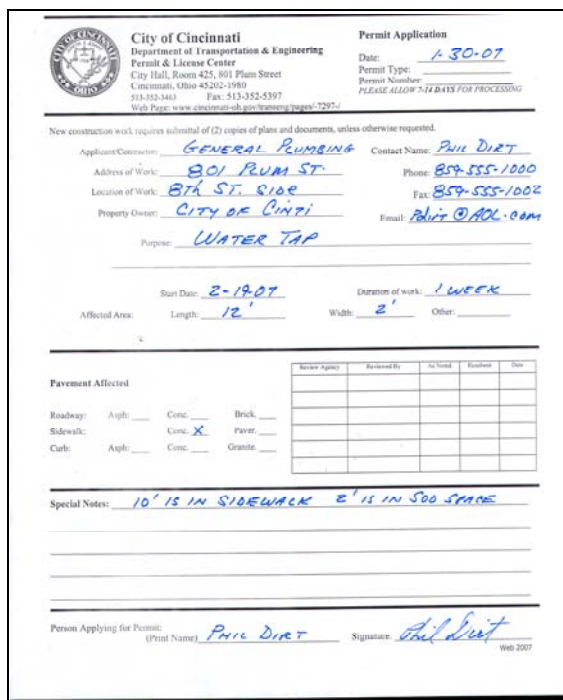 CITY OF CINCINNATI
OHIO
City of Cincinnati
Department of Transportation & Engineering
Permit & License Center
City Hall, Room 425, 801 Plum Street
Cincinnati, Ohio 45202-1980
513-352-3463 Fax: 513-352-5397
Web Page: www.cincinnati-oh.gov/transeng/pages/-7297-/
Permit Application
Date: 1-30-07
Permit Type:
Permit Number:
PLEASE ALLOW 7-14 DAYS FOR PROCESSING
New construction work requires submittal of (2) copies of plans and documents, unless otherwise requested.
Applicant/Contractor: GENERAL PLUMBING Contact Name: PHIL DIRT
Address of Work: 801 PLUM ST. Phone: 859-555-1000
Location of Work: 8TH ST. SIDE Fax: 859-555-1002
Property Owner: CITY OF CINTI Email: Pdirt@AOL.com
Purpose: WATER TAP
Start Date: 2-19-07 Duration of work: 1 WEEK
Affected Area: Length: 12' Width: 2' Other:
Pavement Affected
Review Agency Reviewed By As Noted Resubmit Date
Roadway: Asph: Conc. Brick.
Sidewalk: Conc. X Paver.
Curb: Asph: Conc. Granite.
Special Notes: 10' IS IN SIDEWALK 2' IS IN SOD SPACE
Person Applying for Permit:
(Print Name) PHIL DIRT Signature: Phil Dirt
Web 2007